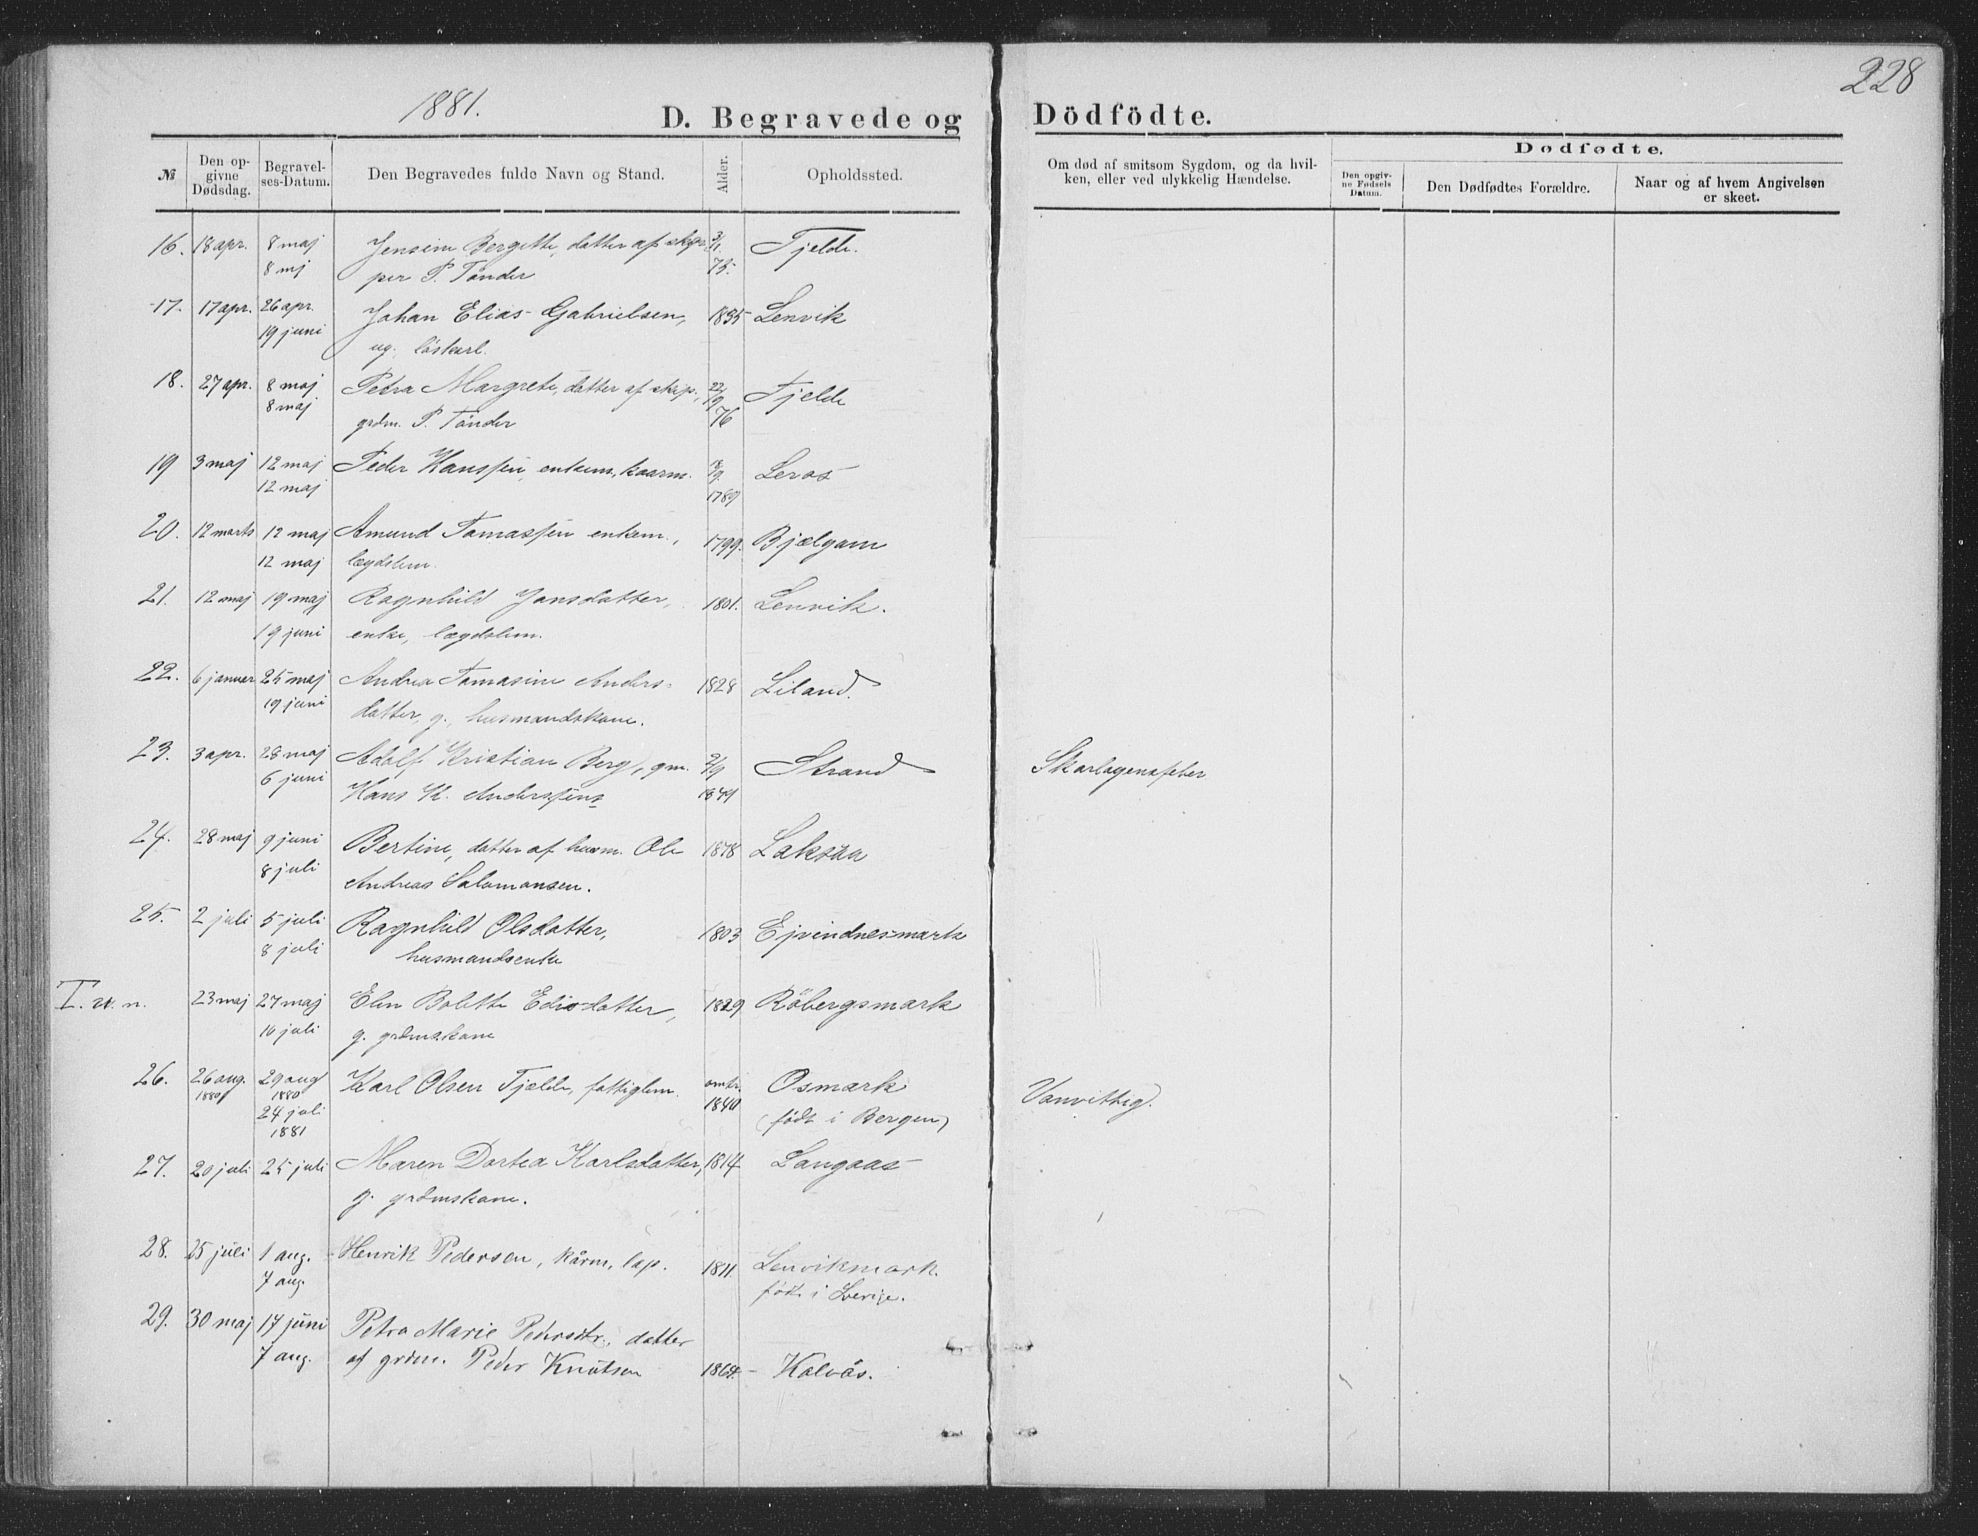 228
1881.
D. Begravede og Dödfödte.
№
Den op-
givne
Dødsdag.
Begravel-
ses-Datum.
Den Begravedes fulde Navn og Stand.
Alder.
Opholdssted.
Om død af smitsom Sygdom, og da hvil-
ken, eller ved ulykkelig Hændelse.
Dødfødte.
Den opgiv-
ne Fødsels
Datum.
Den Dødfødtes Forældre.
Naar og af hvem Angivelsen
er skeet.
16. 18 apr. 8 maj Jensine Bergette, datter af skip- 3/1 Tjelde.
8 mj per P. Tönder 75.
17. 17 apr. 26 apr. Johan Elias Gabrielsen, 1835 Lenvik
19 juni ug. löskarl.
18. 27 apr. 8 maj Petra Margrete, datter af skip., 22/9 Tjelde
8 maj grdm. P. Tönder 76
19 3 maj 12 maj Peder Hanssen, enkem., kaarm. Leros
12 maj 1789
20. 12 marts 12 maj Amund Tomassen enkem., 1799. Bjelgam
12 maj lægdslem.
21. 12 maj 19 maj Ragnhild Jonsdatter, 1801. Lenvik.
19 juni enke, lægdslem.
22. 6 januar 25 maj Andrea Tomasine Anders- 1828 Liland.
19 juni datter, g., husmandskone.
23. 3 apr. 28 maj Adolf Kristian Berg, gm. 2/9 Strand Skarlagensfeber
6 juni Hans K. Anderssens 1849
24. 28 maj 9 juni Bertine, datter af husm. Ole 1878 Laksaa
8 juli Andreas Salomonsen.
25. 2 juli 5 juli Ragnhild Olsdatter, 1803 Ejvindnesmark
8 juli husmandsenke
I. u. n. 23 maj 27 maj Elen Bolette Edisdatter, 1829 Röbergsmark
10 juli g. grdmskone
26. 26 aug. 29 aug Karl Olsen Tjelde, fattiglem. omtr. Osmark Vanvittig.
1880 1880 1840 (födt i Bergen)
24 juli
1881
27. 20 juli 25 juli Maren Dortea Karlsdatter, 1814 Langaas
g. grdmskone.
28. 25 juli 1 aug. Henrik Pedersen, kårm. lap. 1811 Lenvikmark.
7 aug. födt i Sverige.
29. 30 maj 17 juni Petra Marie Pedersdtr., datter
7 aug. af grdm. Peder Knutsen 1864 - Kalvås.